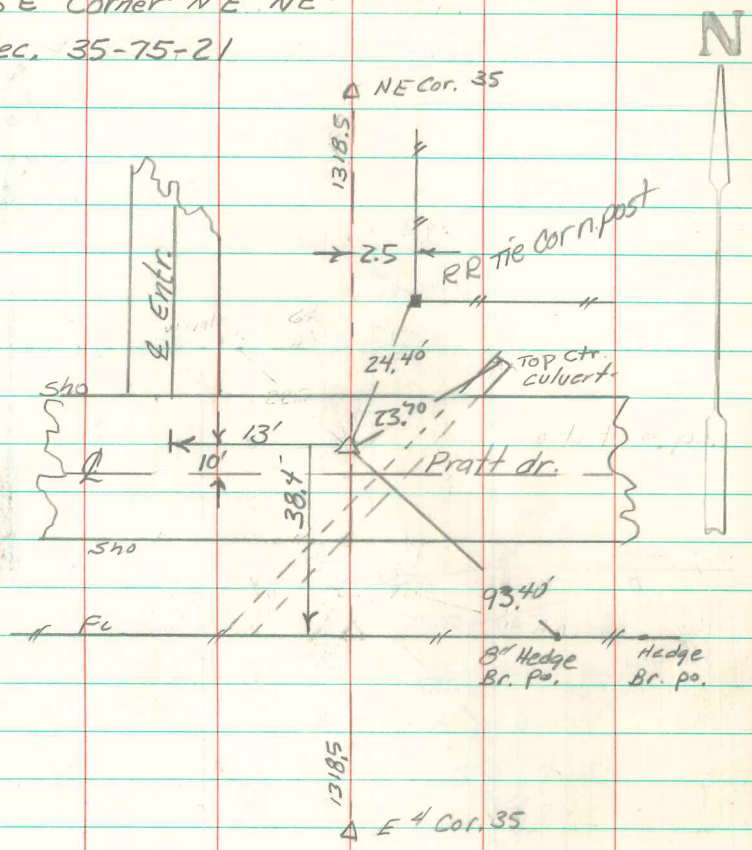 SE Corner NE NE
ec. 35-75-21
N
NE Cor. 35
1318.5
2.5
RR Tie Corn. post
℄ Entr.
24.40
Top Ctr.
culvert
Sho
23.70
13'
10'
℄
Pratt dr.
38.4'
Sho
93.40'
FL
8" Hedge
Br. po.
Hedge
Br. po.
1318.5
E 4 Cor. 35